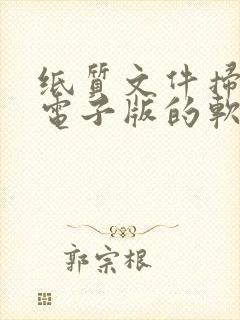 纸質文件掃
電子版的軟
郭宗根